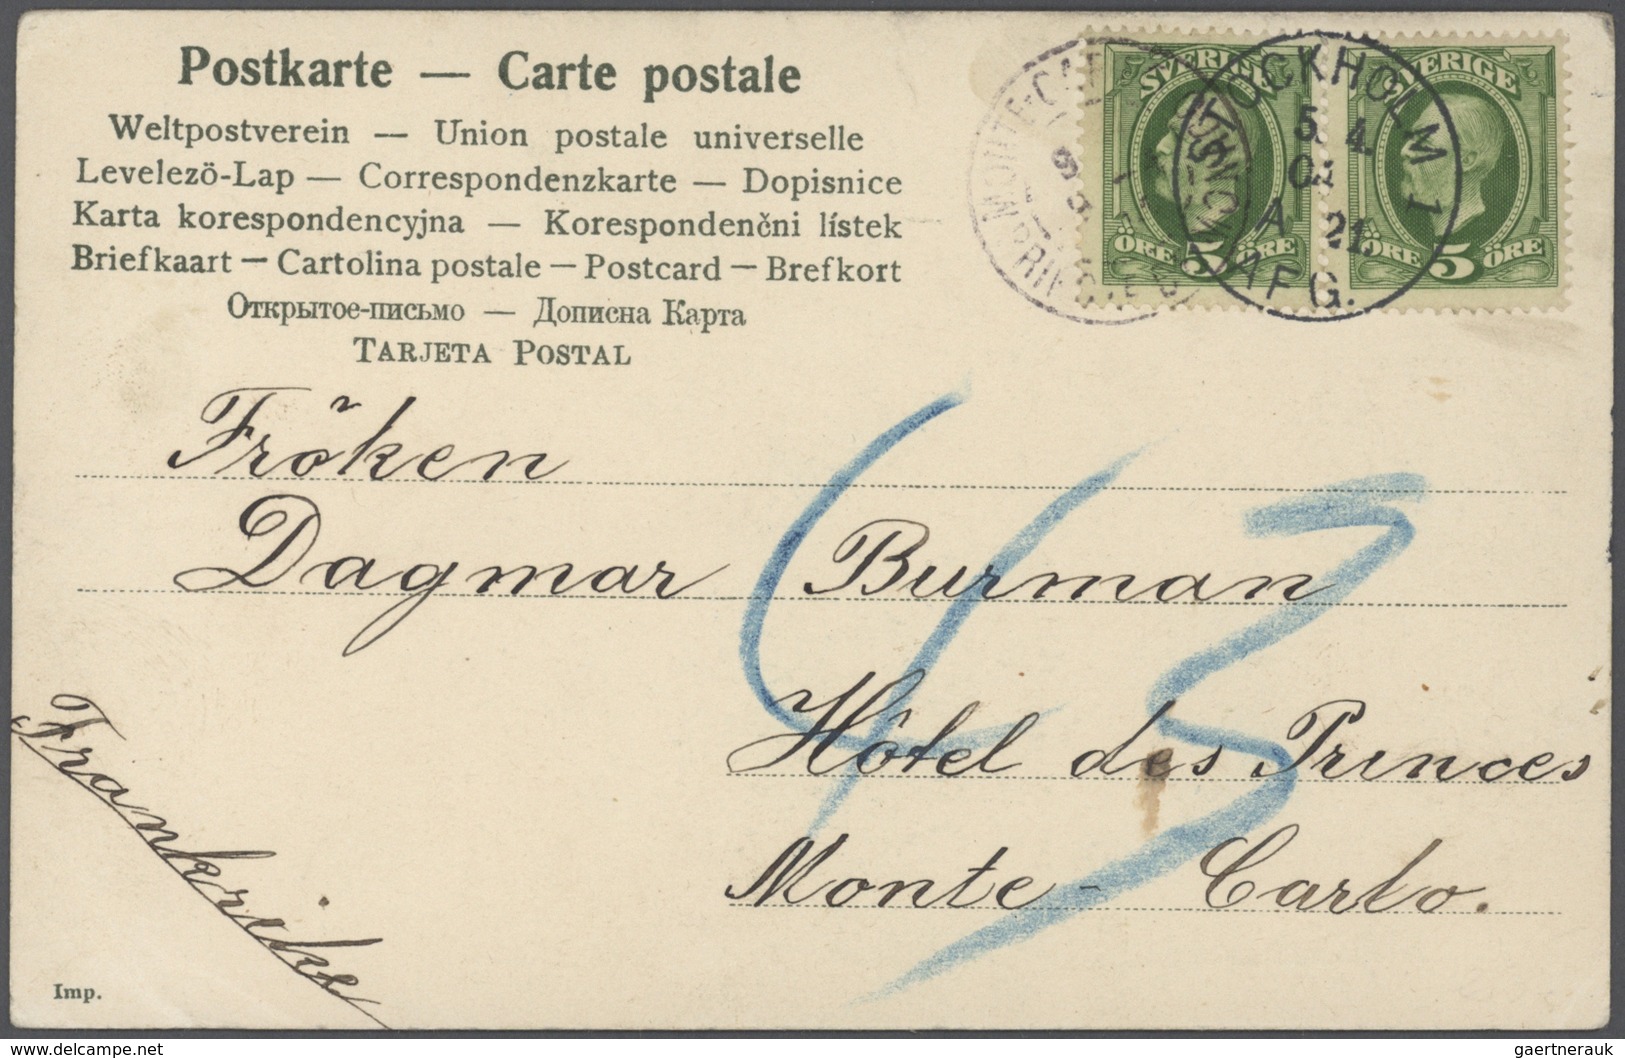 Postkarte — Carte postale
Weltpostverein — Union postale universelle
Levelezö-Lap — Correspondenzkarte — Dopisnice
Karta korespondencyjna — Korespondenčni lístek
Briefkaart — Cartolina postale — Postcard — Brefkort
Открытое-письмо — Дописна Карта
TARJETA POSTAL
SVERIGE
SVERIGE
5
5
ÖRE
ÖRE
ÖRE
ÖRE
STOCKHOLM 1
5. 4.
04
A 21
AFG.
MONACO
Fröken
Dagmar Burman
Hôtel des Princes
Monte-Carlo.
Frankrike
43
Imp.
www.delcampe.net
gaertnerauk